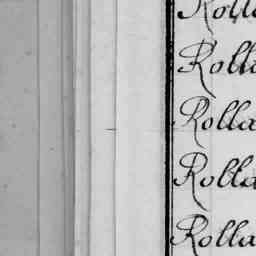 Rolla
Rolla
Rolla
Rolla
Rolla